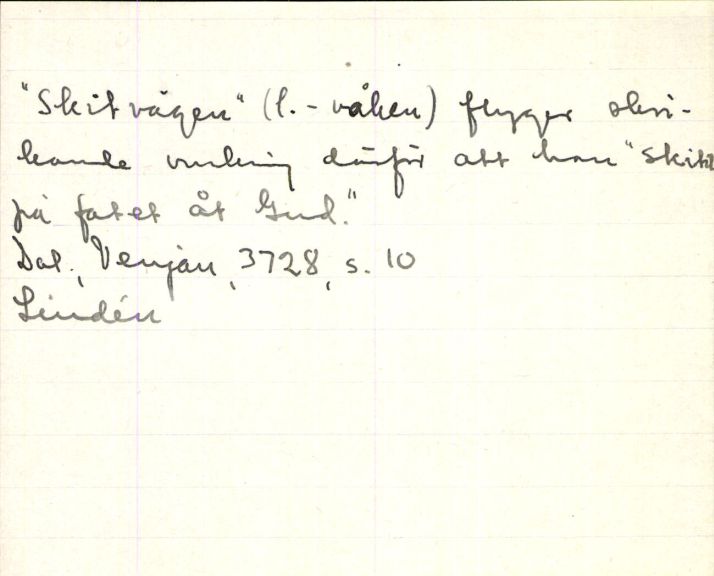 "Skitvågen" (l. - våken) flyger skri-
kande omkring därför att han "skitit
på fatet åt Gud."
Dal., Venjan, 3728, s. 10
Lindén